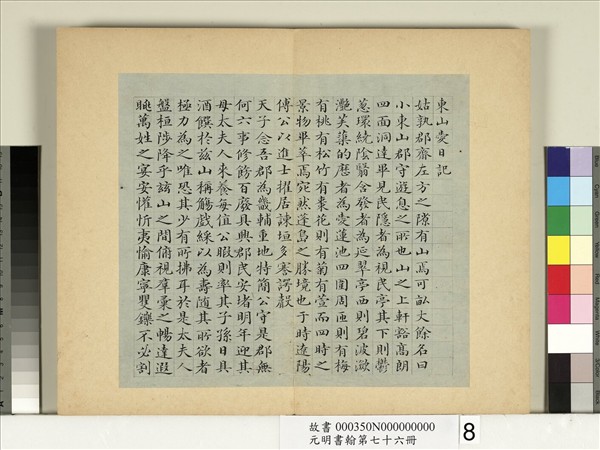 東山愛日記
姑孰郡齋左方之隙有山焉可畝大餘名曰
小東山郡守遊息之所也山之上軒豁高朗
四面洞達畢見民隱者為視民亭其下則鬱
蔥環繞陰翳含發者為延翠亭西則碧波瀲
灧芙蕖的歷者為愛蓮池四圍周匝則有梅
有桃有松竹有棗花則有菊有萱而四時之
景物畢萃焉宛然蓬島之勝境也于時遼陽
傅公以進士擢居諫垣多謇諤聲
天子念吾郡為畿輔重地特簡公守是郡無
何六事修飭百廢具興郡民安堵明年迎其
母太夫人來養每值公暇則率其子孫日具
酒饌於茲山稱觴戲綵以為壽隨其所欲者
極力為之唯恐其少有所拂耳於是太夫人
盤桓陟降乎該山之間俯視羣彙之暢達遐
眺萬姓之宴安懽忻夷愉康寧矍鑠不必割
故書 000350N000000000
元明書翰第七十六冊
8